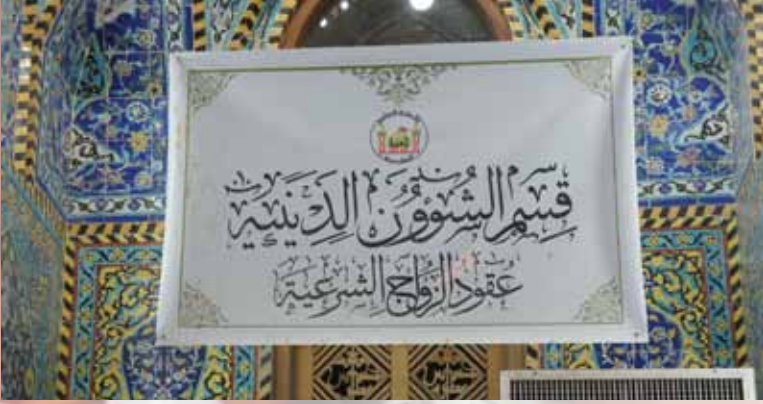 قِسْمُ الشُّؤُوْنِ الدِّيْنِيَّةِ
عُقُودُ الزَّوَاجِ الشَّرْعِيَّةِ